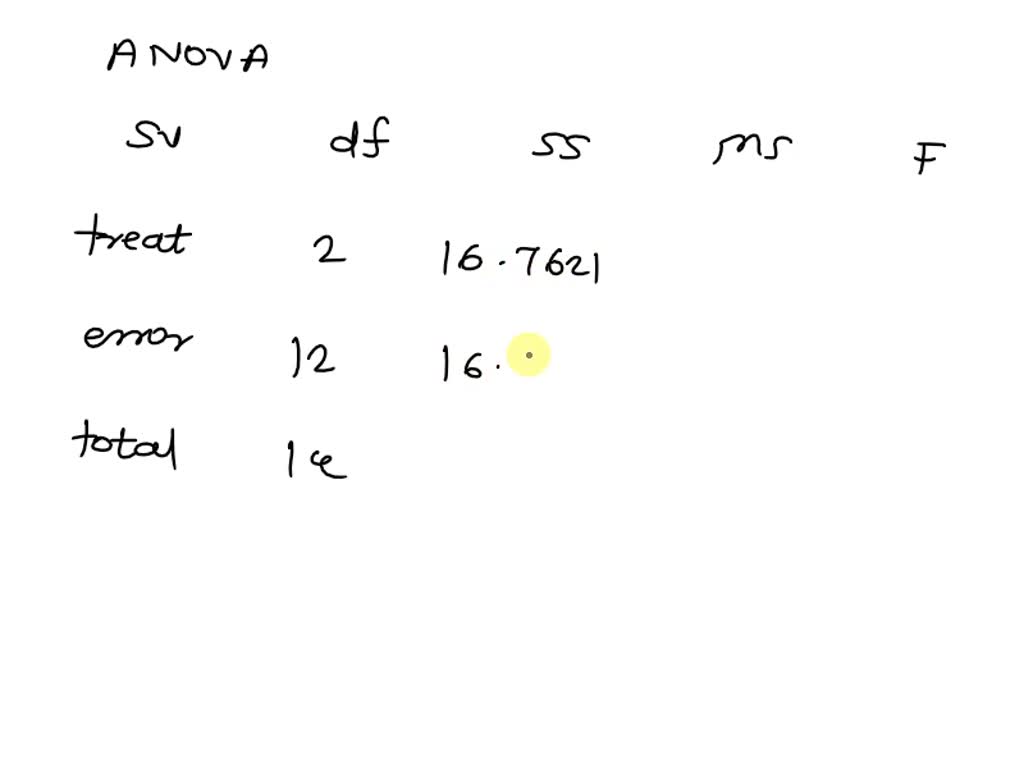 ANOVA
SV df SS MS F
treat 2 16.7621
error 12 16.
total 14